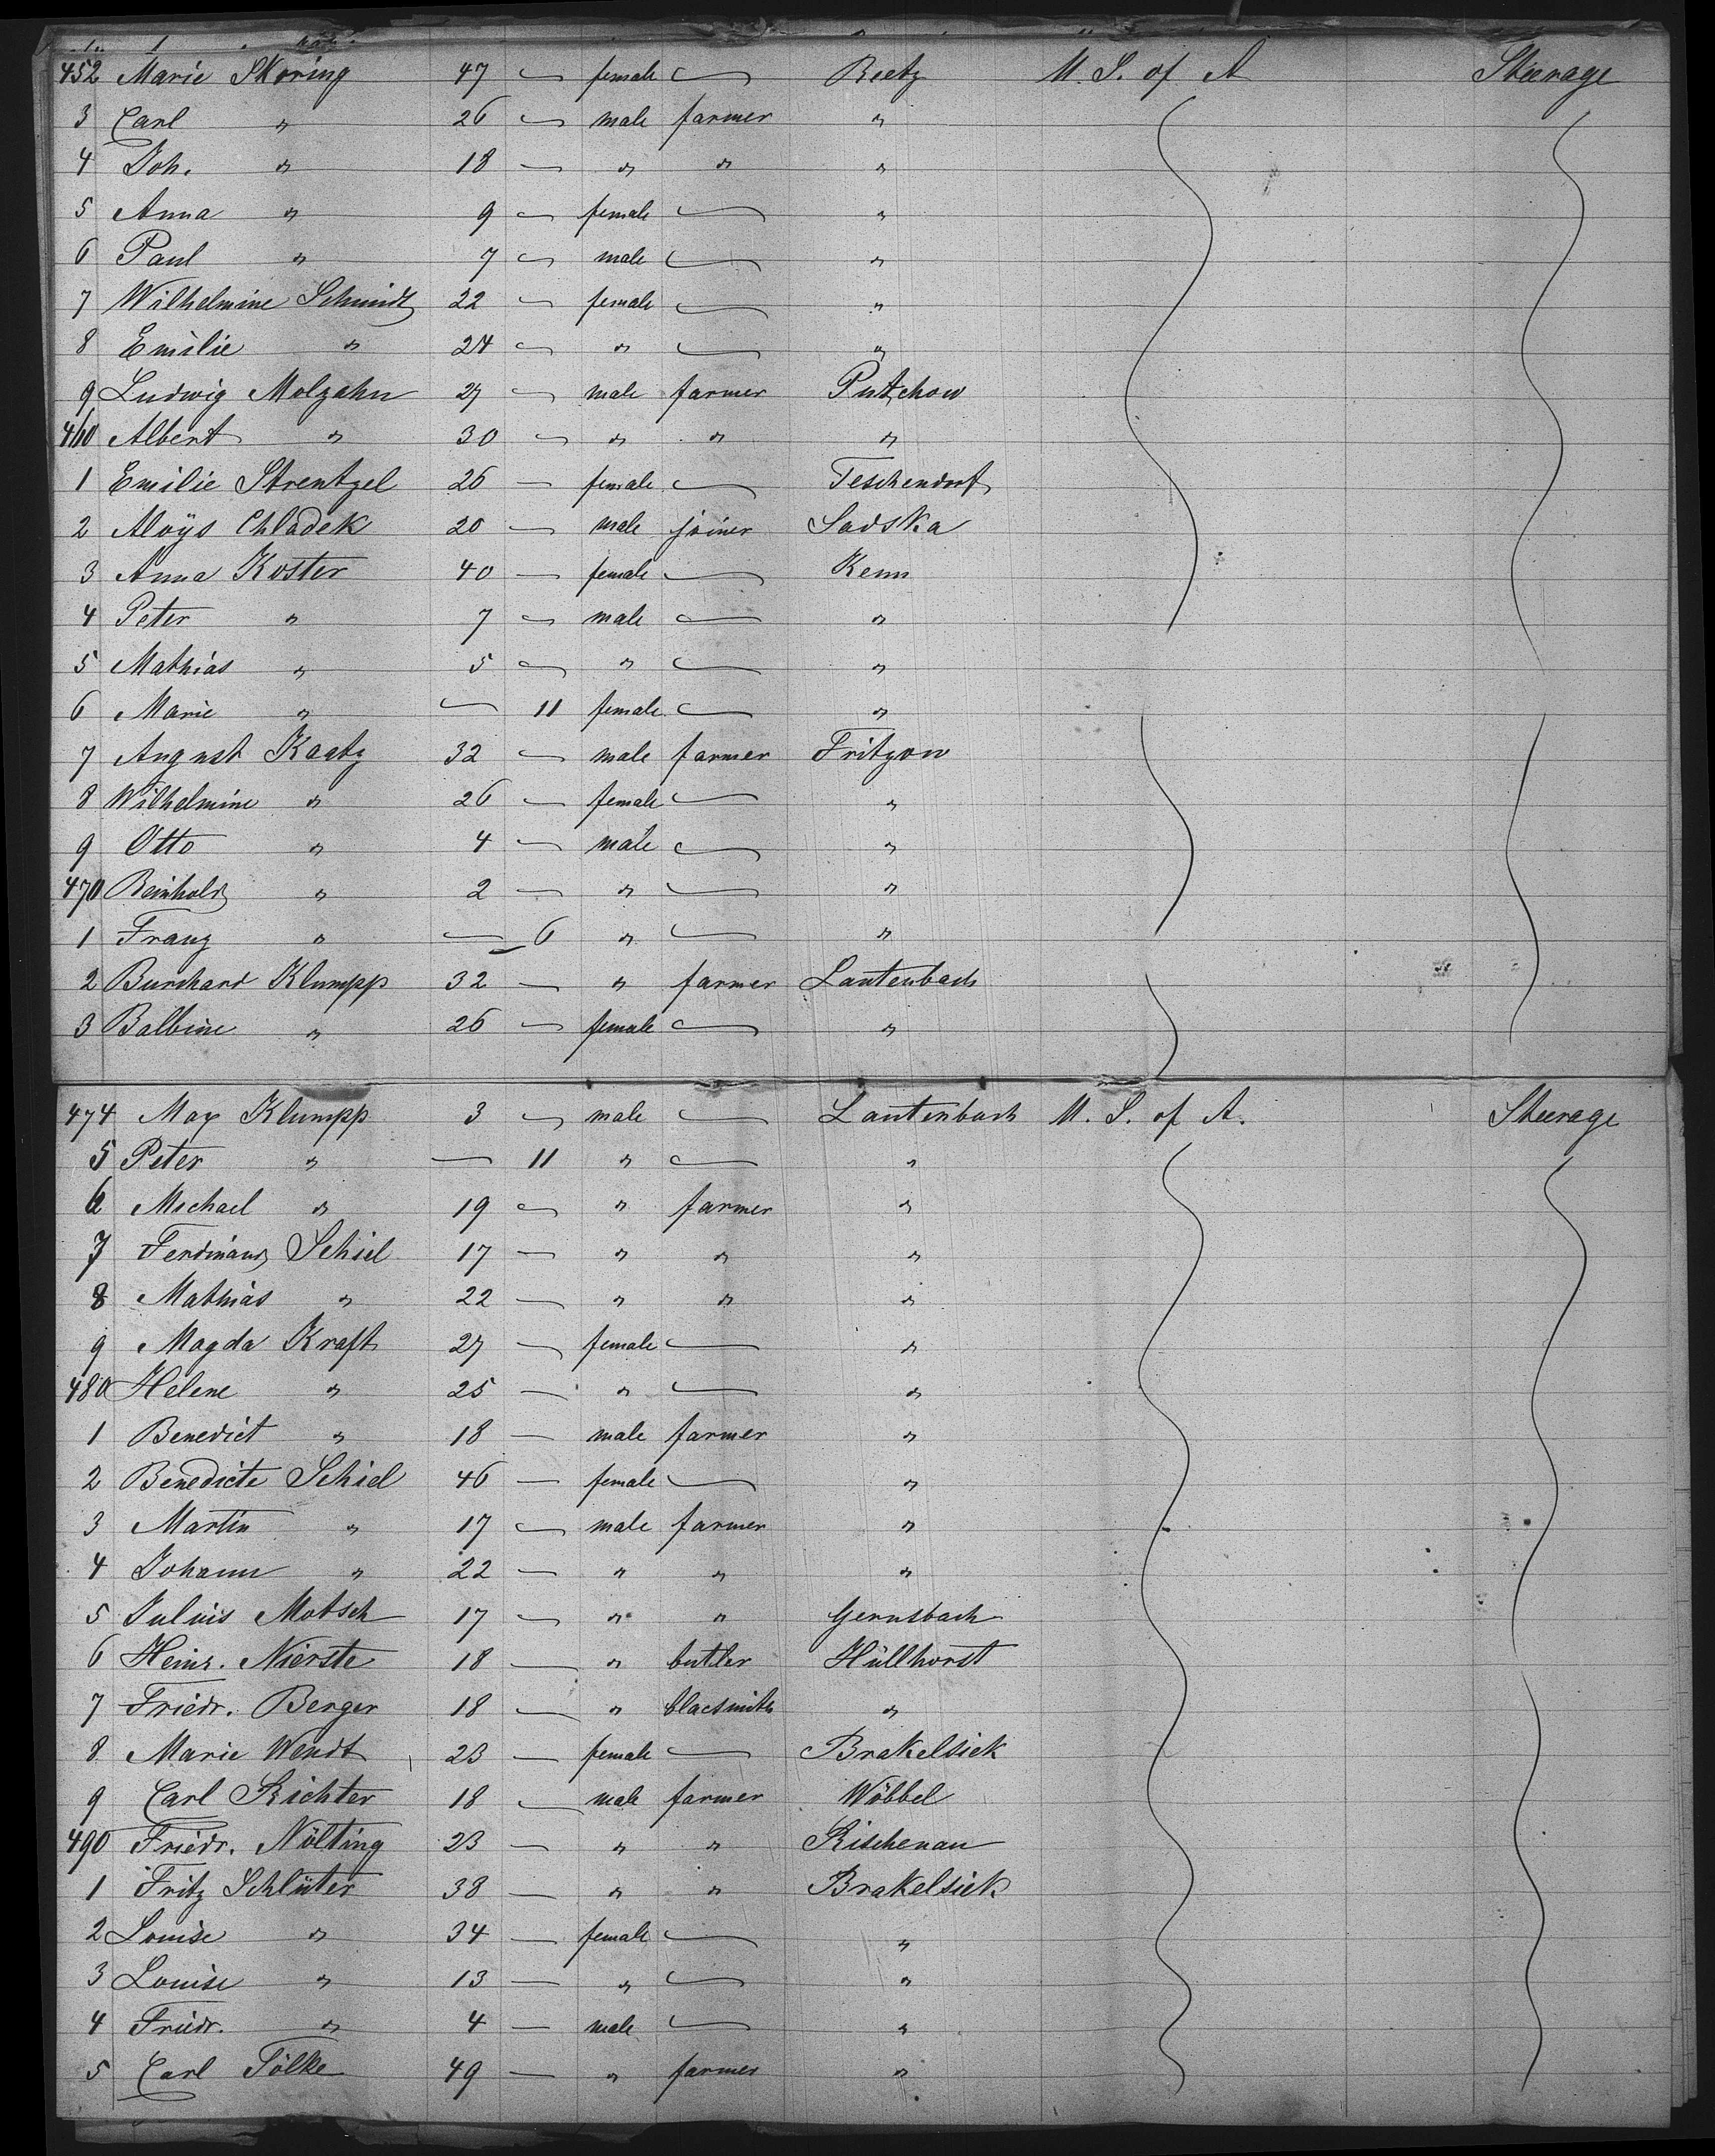 452 Marie Skoring 47 — female — Reetz U. S. of A Steerage
3 Carl " 26 — male farmer "
4 Joh. " 18 — " " "
5 Anna " 9 — female — "
6 Paul " 7 — male — "
7 Wilhelmine Schmidt 22 — female — "
8 Emilie " 24 — " — "
9 Ludwig Molzahn 27 — male farmer Putchow
460 Albert " 30 — " " "
1 Emilie Strentzel 26 — female — Teschendorf
2 Aloÿs Chladek 20 — male joiner Sadska
3 Anna Koster 40 — female — Kenn
4 Peter " 7 — male — "
5 Mathias " 5 — " — "
6 Marie " — 11 female — "
7 August Kaatz 32 — male farmer Fritzow
8 Wilhelmine " 26 — female — "
9 Otto " 4 — male — "
470 Reinhold " 2 — " — "
1 Franz " — 6 " — "
2 Burchard Klumpp 32 — " farmer Lautenbach
3 Balbine " 26 — female — "
474 Max Klumpp 3 — male — Lautenbach U. S. of A. Steerage
5 Peter " — 11 " — "
6 Michael " 19 — " farmer "
7 Ferdinand Schiel 17 — " " "
8 Mathias " 22 — " " "
9 Magda Kraft 27 — female — "
480 Helene " 25 — " — "
1 Benedict " 18 — male farmer "
2 Benedicte Schiel 46 — female — "
3 Martin " 17 — male farmer "
4 Johann " 22 — " " "
5 Julius Motsch 17 — " " Gernsbach
6 Heinr. Nierste 18 — " buttler Hüllhorst
7 Friedr. Berger 18 — " blacsmith "
8 Marie Wendt 23 — female — Brakelsiek
9 Carl Richter 18 — male farmer Wöbbel
490 Friedr. Nölting 23 — " " Rischenau
1 Fritz Schlüter 38 — " " Brakelsiek
2 Louise " 34 — female — "
3 Louise " 13 — " — "
4 Friedr. " 4 — male — "
5 Carl Tölke 49 — " farmer "